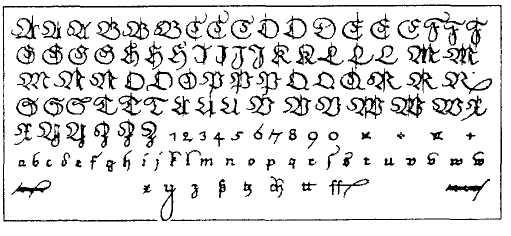 A A A A B B B C C C D D D E E E F F F
G G G G H H H I I J J K K L L L M M
M N N N O O O P P P Q Q Q R R R
S S S T T T U U U V V V W W W X
X Y Y Z Z Z 1 2 3 4 5 6 7 8 9 0
a b c d e f g h i j k l m n o p q r s t u v w
x y z ß tz ch tt ff